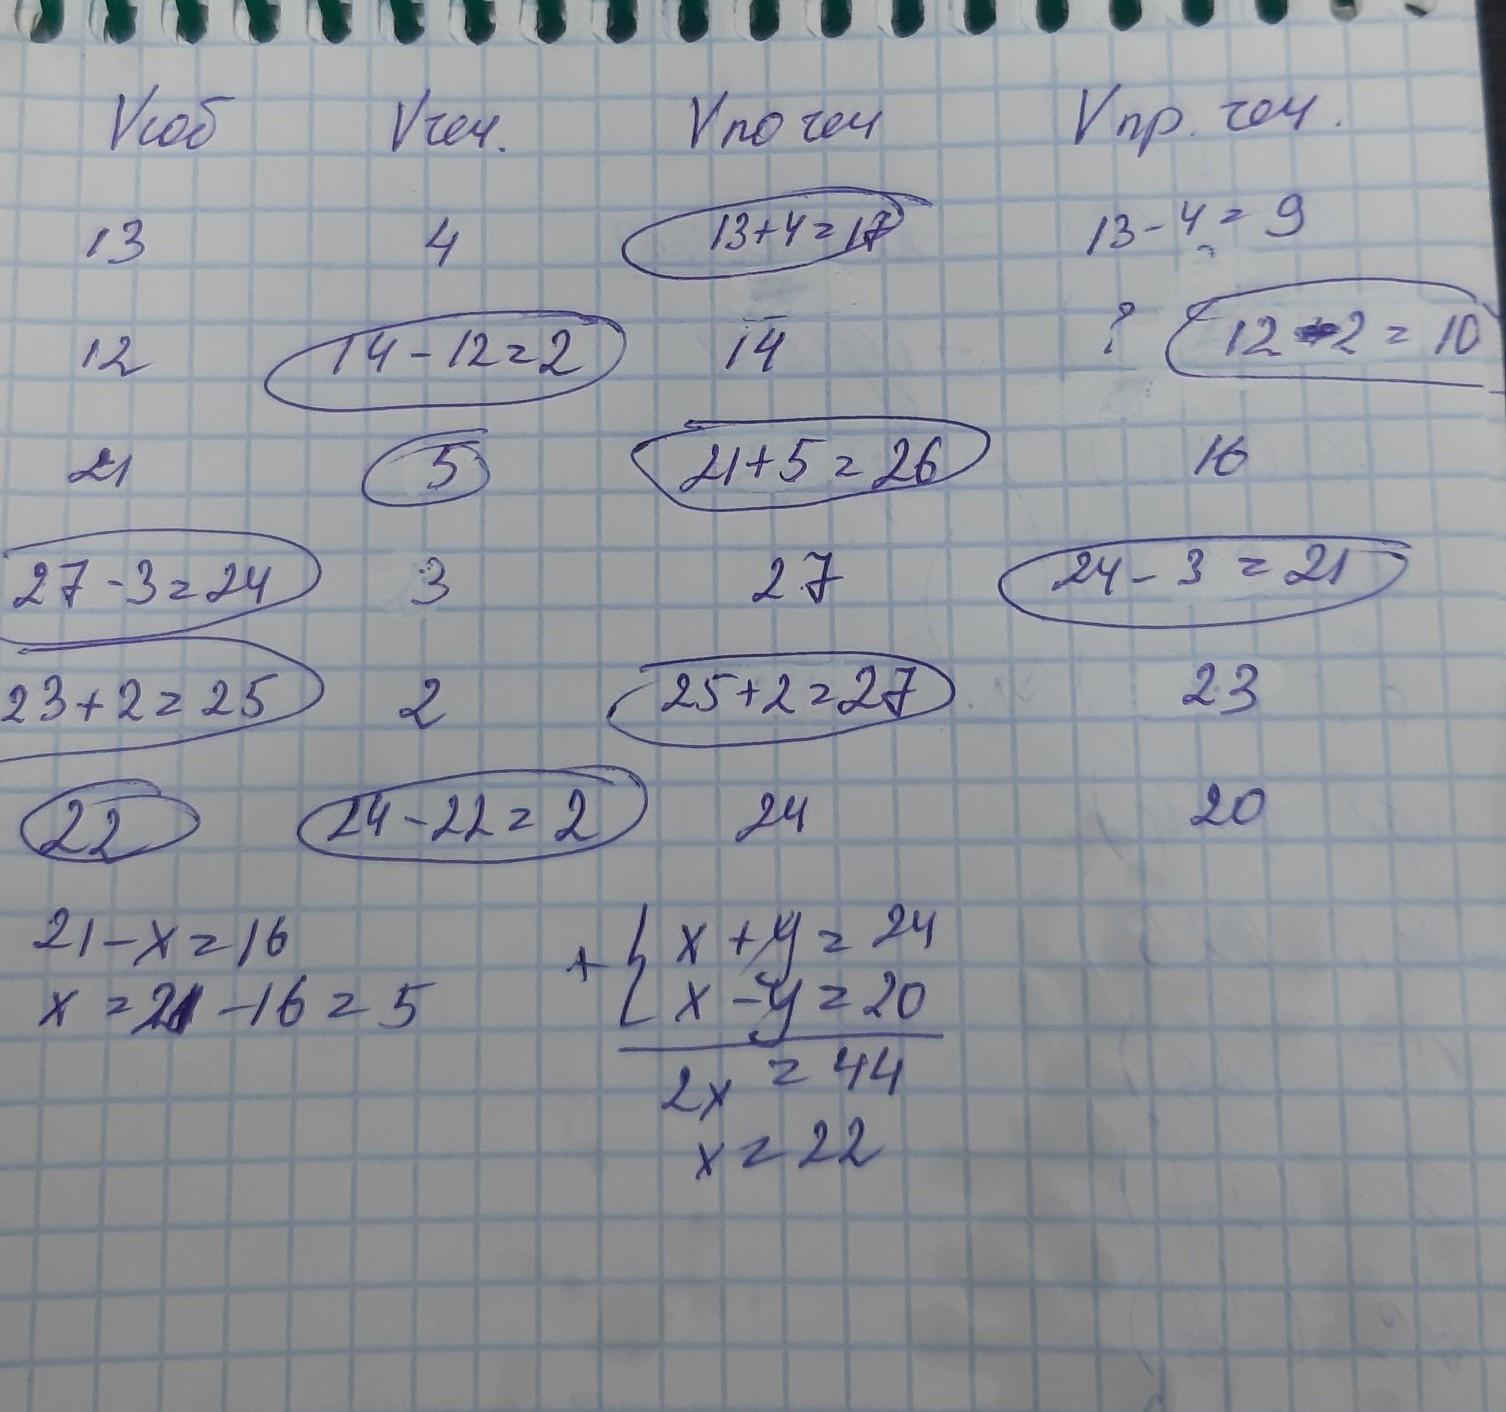 Vсоб Vтеч. Vпо теч Vпр. теч.
13 4 13+4=17 13-4=9
12 14-12=2 14 ? 12-2=10
21 5 21+5=26 16
27-3=24 3 27 24-3=21
23+2=25 2 25+2=27 23
22 24-22=2 24 20
21-x=16
x=21-16=5
+ { x+y=24
x-y=20
2x=44
x=22